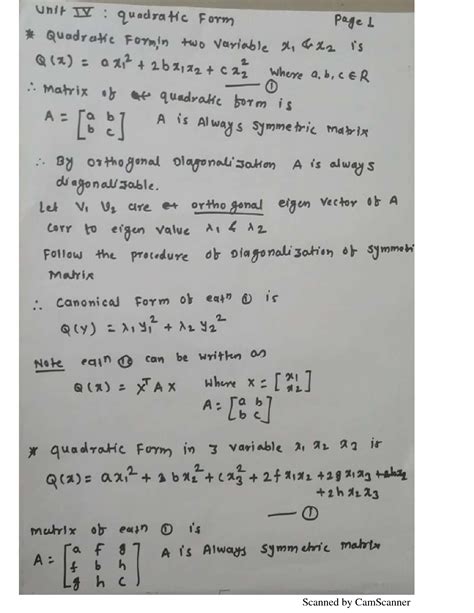 Unit IV : quadratic Form Page 1
* Quadratic Form,in two variable x1 & x2 is
Q(x) = ax1² + 2bx1x2 + cx2² where a, b, c ∈ R
— ①
∴ Matrix of quadratic form is
A = [a b
b c] A is Always symmetric matrix
∴ By orthogonal Diagonalization A is always
diagonalizable.
Let V1 V2 are orthogonal eigen vector of A
corr to eigen value λ1 & λ2
Follow the procedure of Diagonalization of symmetri
Matrix
∴ Canonical Form of eqtn ① is
Q(y) = λ1 y1² + λ2 y2²
Note eqtn ① can be written as
Q(x) = X^T A X where x = [x1
x2]
A = [a b
b c]
* quadratic Form in 3 variable x1 x2 x3 is
Q(x) = ax1² + bx2² + cx3² + 2f x1x2 + 2g x1x3
+ 2h x2x3
— ①
matrix of eqtn ① is
A = [a f g
f b h
g h c] A is Always symmetric matrix
Scanned by CamScanner